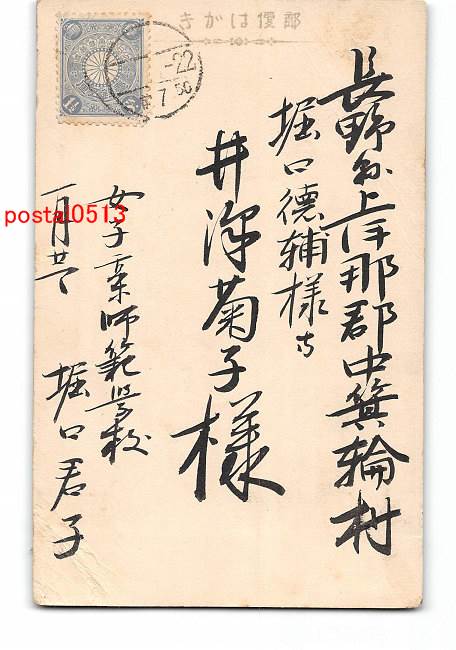 郵便はかき
長野縣上伊那郡中箕輪村
堀口德輔様方
井深菊子様
女子高等師範學校
一月廿
堀口君子
postal0513
-22
7.50
1½